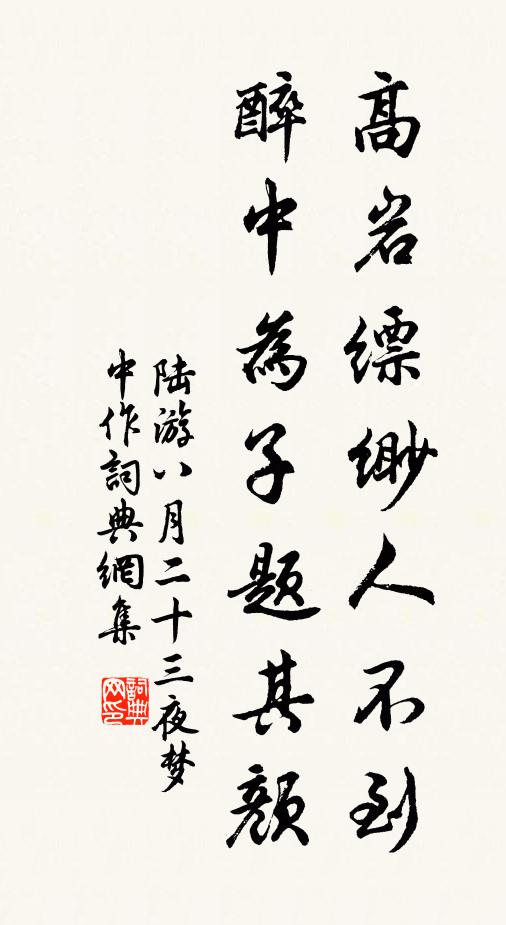 高岩缥缈人不到
醉中為子题其颜
陆游八月二十三夜梦
中作詞典網集
詞典网印